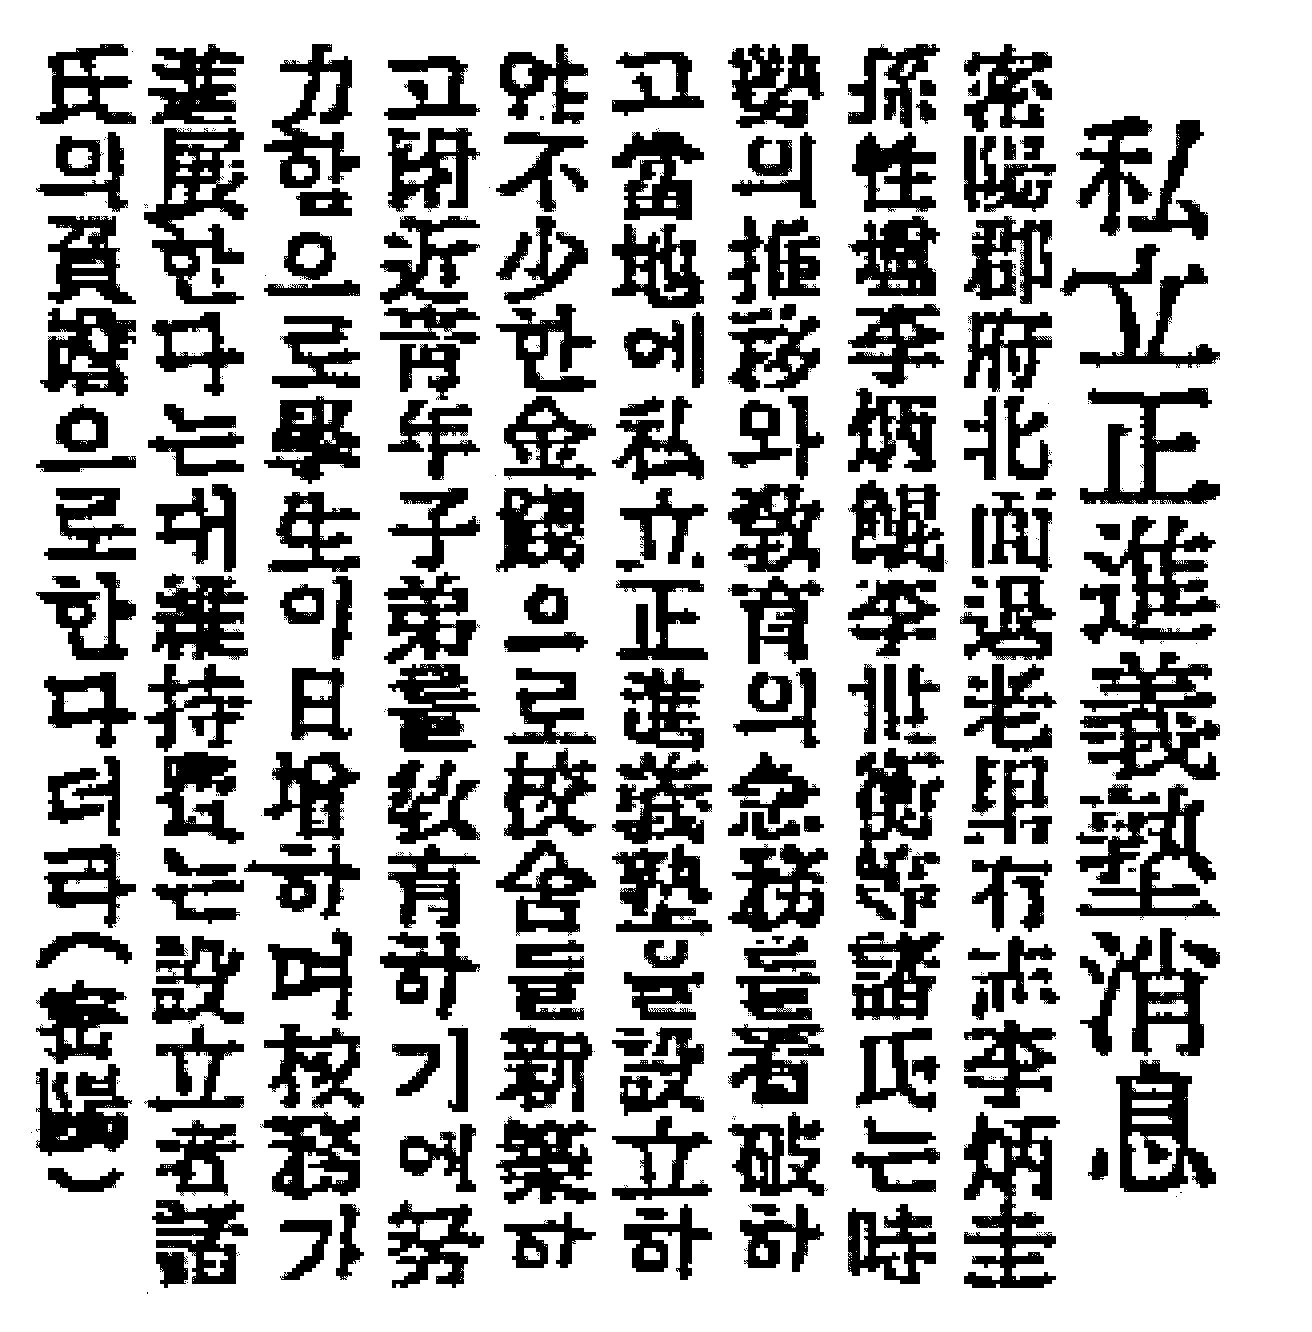 私立正進義塾消息
密陽郡府北面退老里有志李炳圭
孫性塭李炳鯤李世衡等諸氏는時
勢의推移와敎育의急務를看破하
고當地에私立正進義塾을設立하
야不少한金錢으로校舍를新築하
고附近靑年子弟를敎育하기에努
力함으로學生이日增하며校務가
進展한다는대維持費는設立者諸
氏의負擔으로한다더라(密陽)